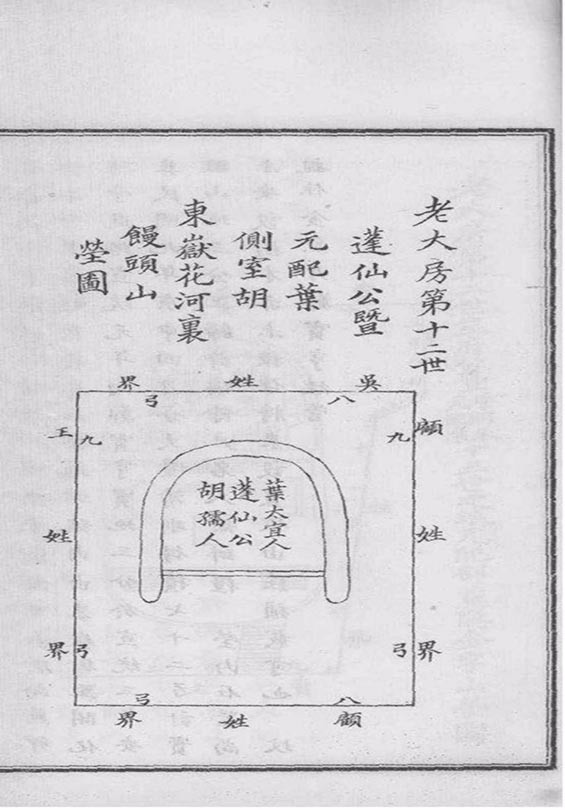 老大房第十二世
蓬仙公暨
元配葉
側室胡
東嶽花河裏
饅頭山
塋圖
吳姓界
八弓
顧姓界
九弓
葉太宜人
蓬仙公
胡孺人
王姓界
九弓
顧姓界
八弓